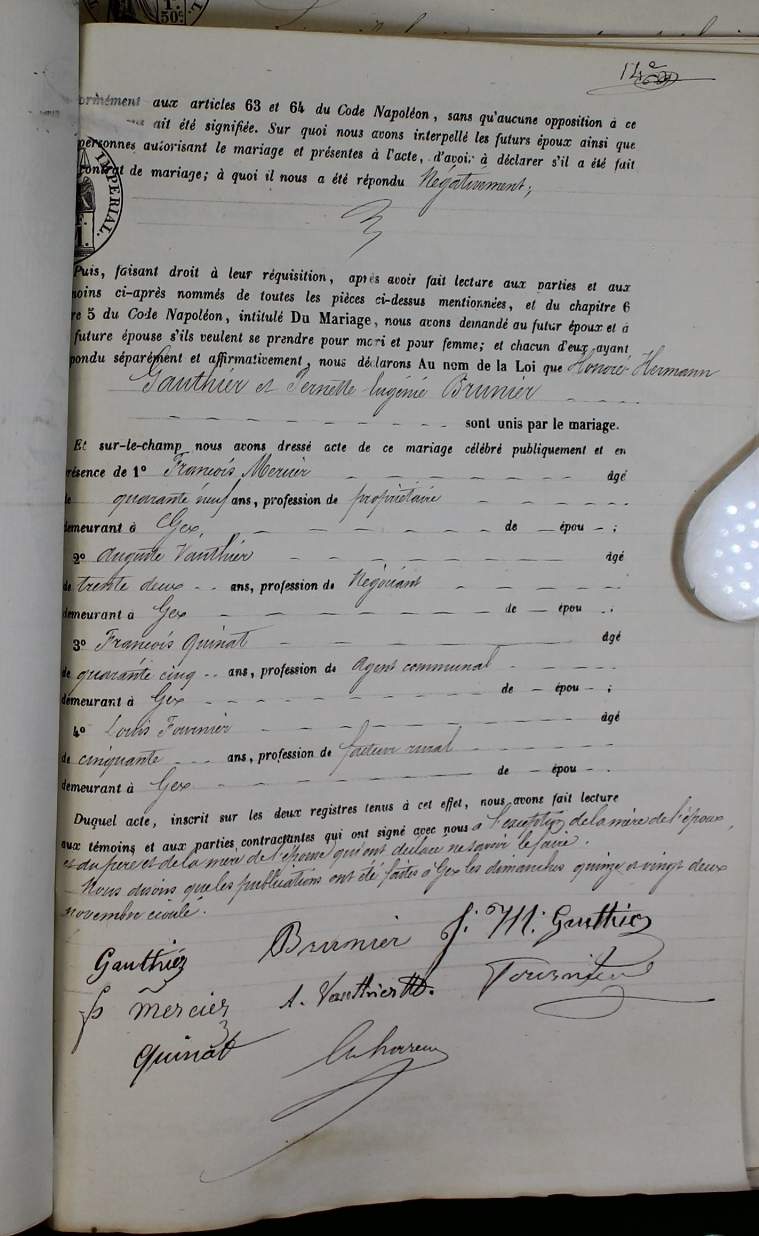 14e
ormément aux articles 63 et 64 du Code Napoléon, sans qu'aucune opposition à ce
ait été signifiée. Sur quoi nous avons interpellé les futurs époux ainsi que
personnes autorisant le mariage et présentes à l'acte, d'avoir à déclarer s'il a été fait
contrat de mariage; à quoi il nous a été répondu Négativement;
IMPERIAL.
Puis, faisant droit à leur réquisition, après avoir fait lecture aux parties et aux
moins ci-après nommés de toutes les pièces ci-dessus mentionnées, et du chapitre 6
re 5 du Code Napoléon, intitulé Du Mariage, nous avons demandé au futur époux et à
future épouse s'ils veulent se prendre pour mari et pour femme; et chacun d'eux ayant
pondu séparément et affirmativement, nous déclarons Au nom de la Loi que Honoré Hermann
Gauthier et Pernette Eugénie Brunier
sont unis par le mariage.
Et sur-le-champ nous avons dressé acte de ce mariage célébré publiquement et en
résence de 1° François Mercier âgé
de quarante neuf ans, profession de propriétaire
demeurant à Gex, de — épou - ;
2° Auguste Vauthier âgé
de trente deux ans, profession de Négociant
demeurant à Gex de — épou - ;
3° François Quinat âgé
de quarante cinq ans, profession de Agent communal
demeurant à Gex de — épou - ;
4° Louis Fournier âgé
de cinquante ans, profession de facteur rural
demeurant à Gex de — épou - .
Duquel acte, inscrit sur les deux registres tenus à cet effet, nous avons fait lecture
aux témoins et aux parties contractantes qui ont signé avec nous à l'exception de la mère de l'époux,
et du père et de la mère de l'épouse qui ont déclaré ne savoir le faire.
Nous disons que les publications ont été faites à Gex les dimanches quinze et vingt deux
novembre
Gauthier Brunier J. M. Gauthier
fs Mercier A. Vauthier Fournier
Quinat